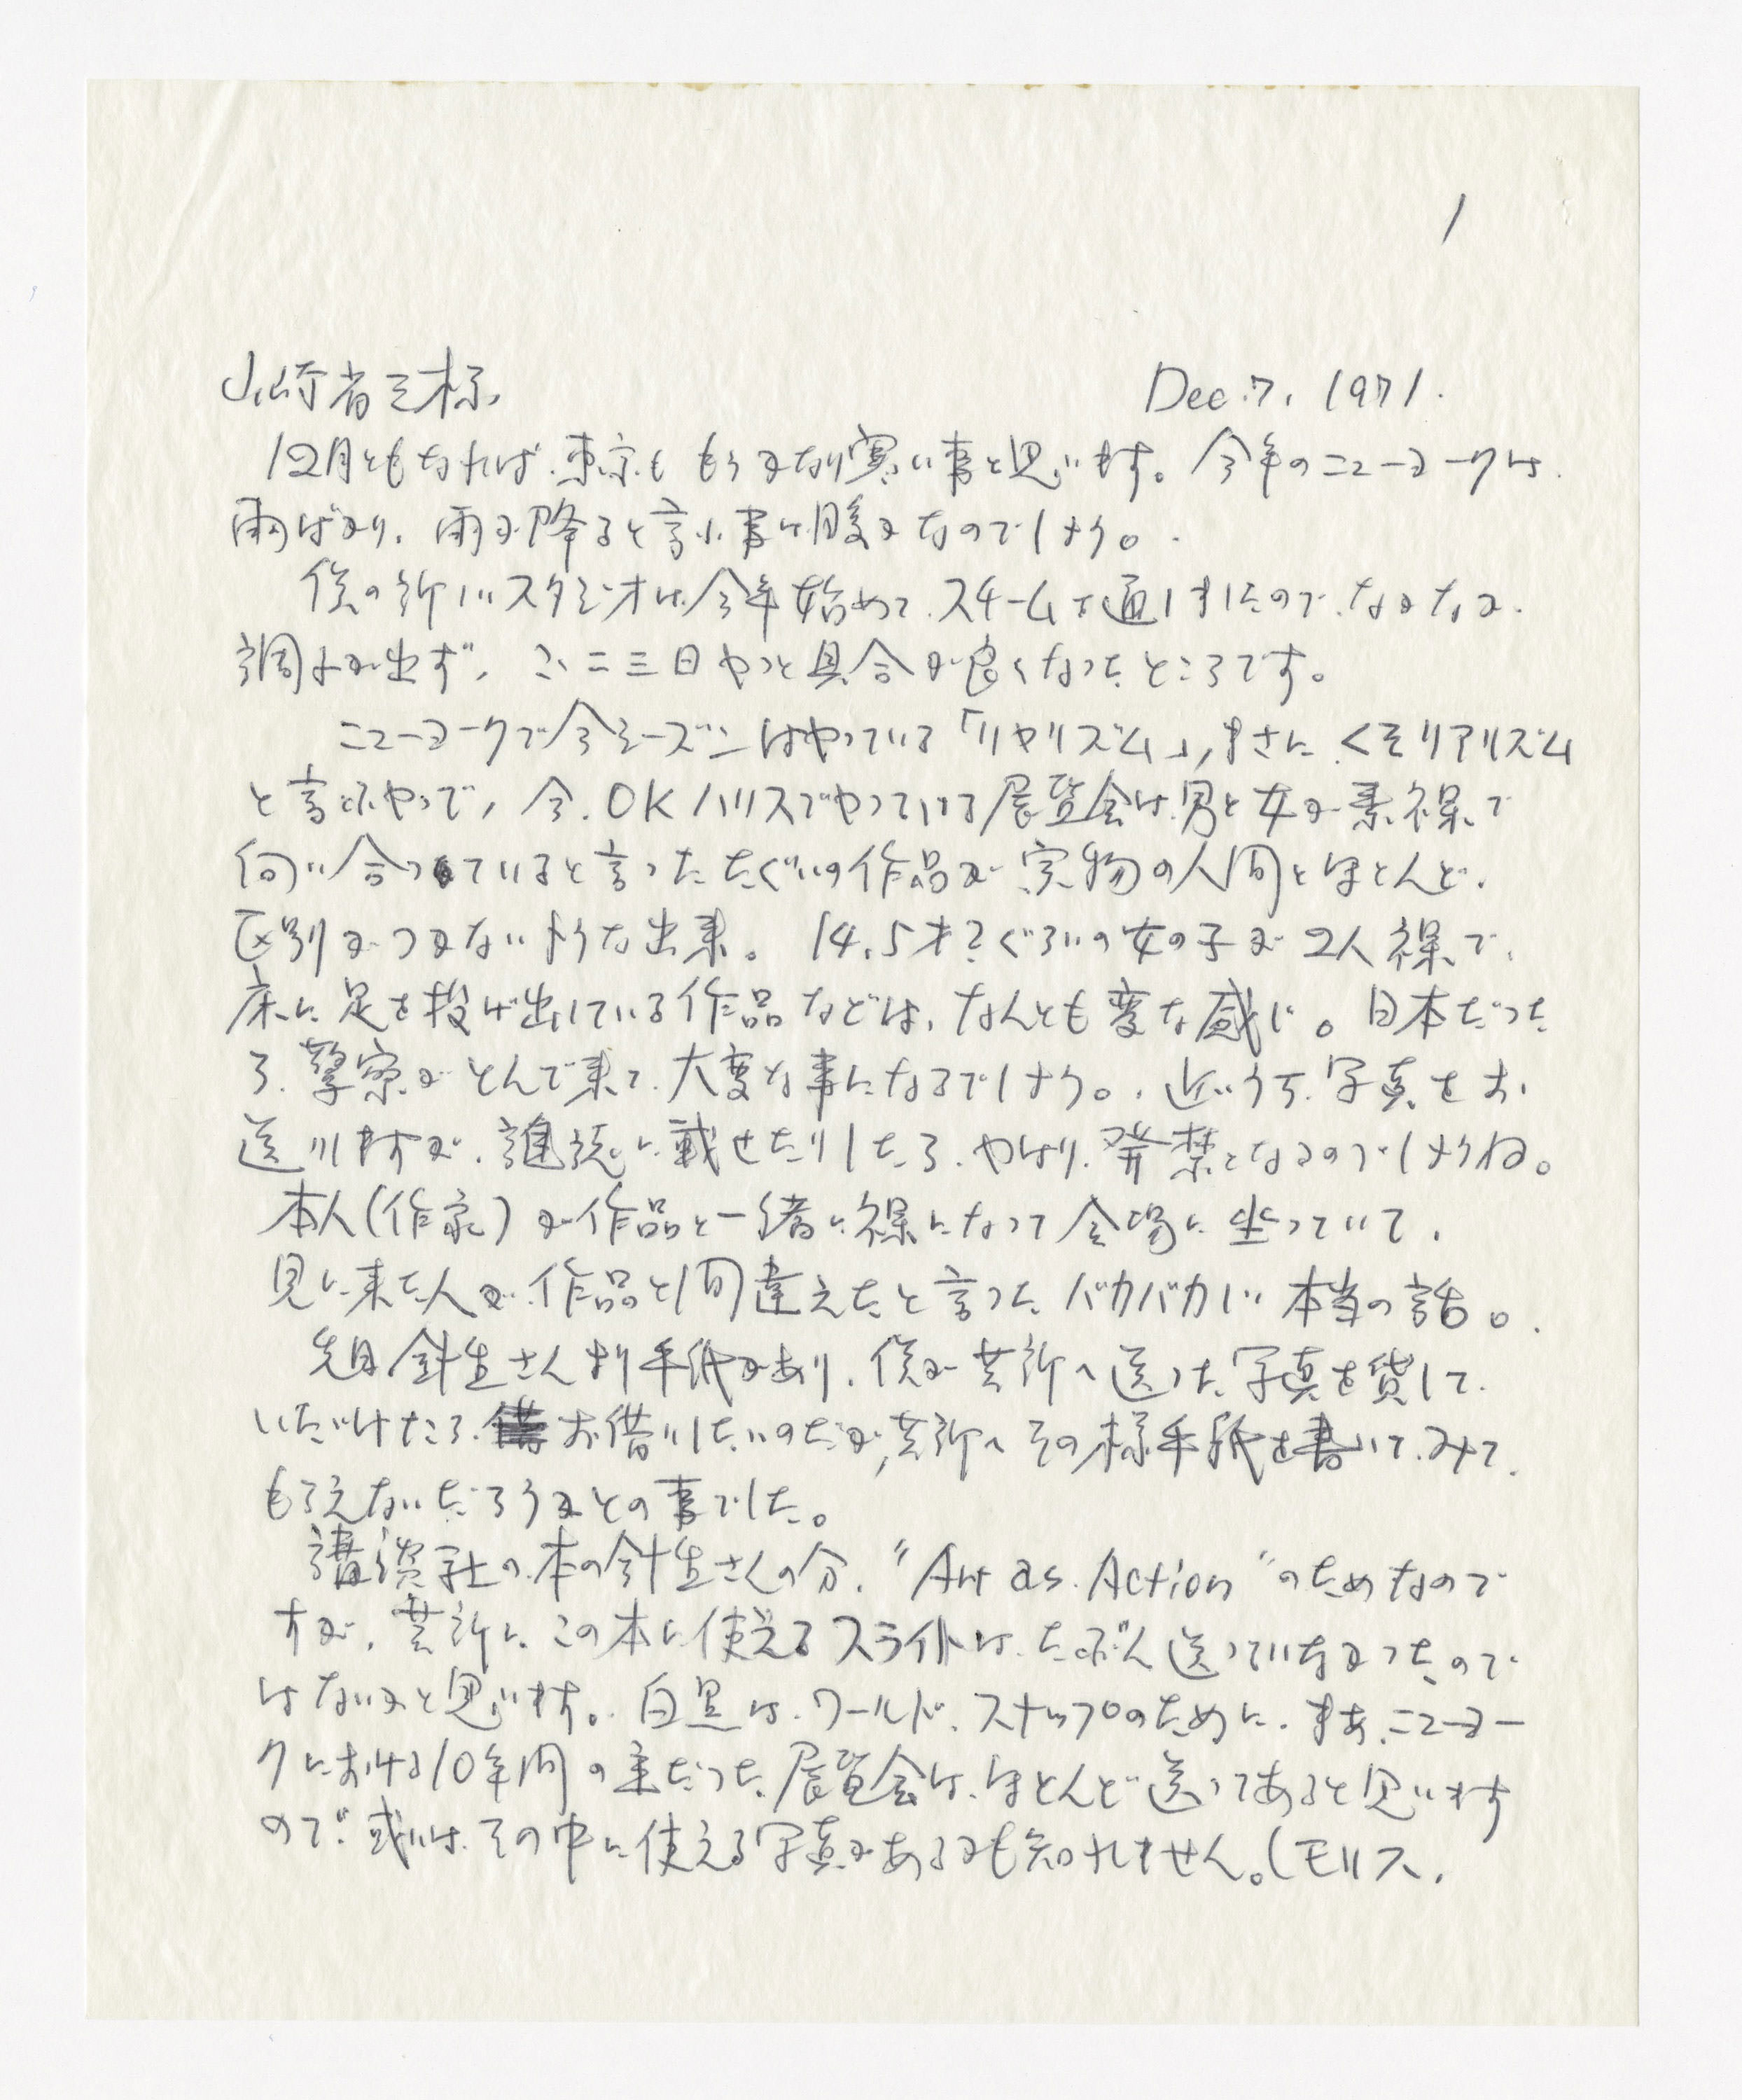 1
山崎省三様、 Dec. 7, 1971.
12月ともなれば、東京も もうかなり寒い事と思います。今年のニューヨークは
雨ばかり、雨が降ると言う事は暖かなのでしょう。
僕の新しいスタジオは今年始めて、スチームを通しましたので、なかなか
調子が出ず、ここ二三日やっと具合が良くなったところです。
ニューヨークで今シーズンはやっている「リヤリズム」、まさに、くそリアリズム
と言うやつで、今、OKハリスでやっている展覧会は、男と女が素裸で
向い合っていると言ったたぐいの作品が、実物の人間とほとんど、
区別がつかないような出来。14、5才？ぐらいの女の子が2人裸で、
床に足を投げ出している作品などは、なんとも変な感じ。日本だった
ら、警察がとんで来て、大変な事になるでしょう。近いうち、写真をお
送りしますが、雑誌に載せたりしたら、やはり、発禁となるのでしょうね。
本人(作家)が作品と一緒に裸になって会場に坐っていて、
見に来た人が、作品と間違えたと言ったバカバカしい本当の話。
先日針生さんより手紙があり、僕が芸新へ送った写真を貸して、
いただけたら、お借りしたいのだが、芸新へその様手紙を書いて、みて、
もらえないだろうかとの事でした。
講談社の本の針生さんの分、"Art as Action"のためなので
すが、芸新に、この本に使えるスライドは、たぶん送っていなかったので
はないかと思います。白黒は、ワールド・スナップのために、まあ、ニューヨー
クにおける10年間の主だった展覧会は、ほとんど送ってあると思います
ので、或いは、その中に使える写真があるかも知れません。(モリス、